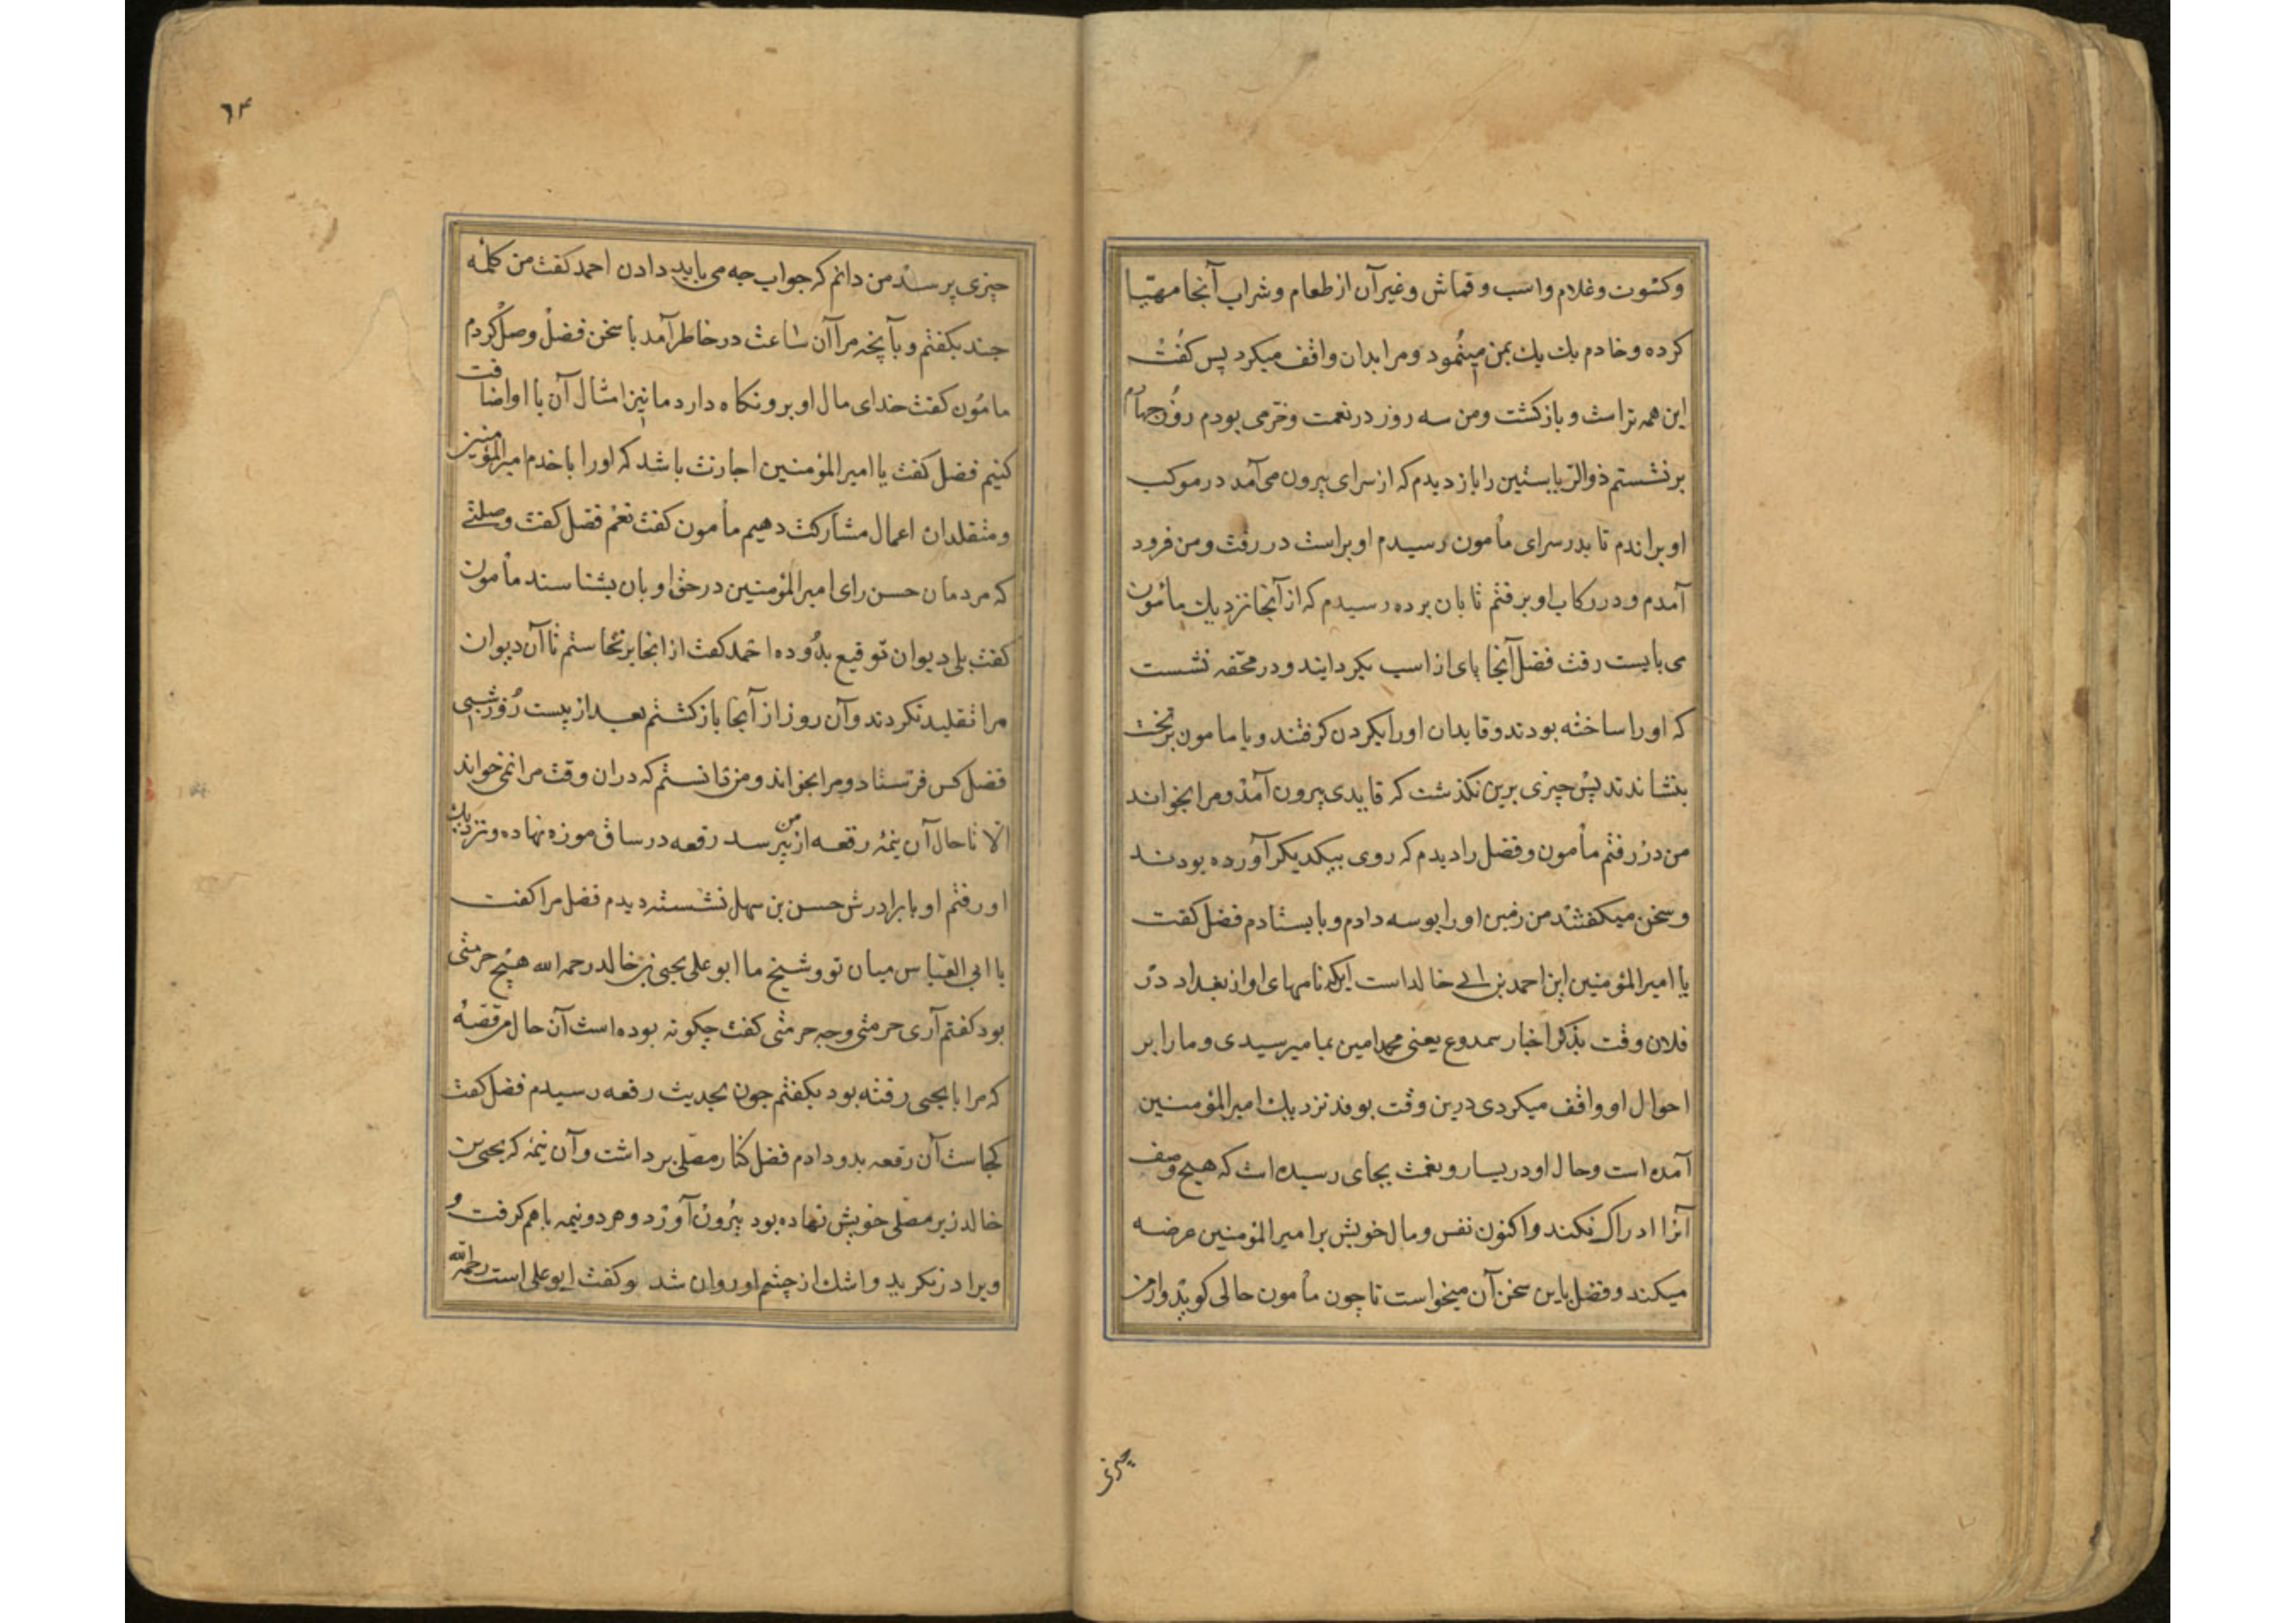 وکسوت و غلام و اسب و قماش و غیر آن از طعام و شراب آنجا مهیّا
کرده و خادم یك یك بمن مینمود و مرا بدان واقف میکرد پس کفت
این همه تراست و بازکشت و من سه روز در نعمت و خرّمی بودم روز چهارم
برنشستم ذوالریاستین را باز دیدم که از سرای بیرون می‌آمد در موکب
او براندم تا بدر سرای مأمون رسیدم او براست در رفت و من فرود
آمدم و در رکاب او برفتم تا بان برده رسیدم که از آنجا نزدیك مأمون
می بایست رفت فضل آنجا پای از اسب بکردانید و در محفّه نشست
که او را ساخته بودند و قایدان او را بکردن کرفتند و با مامون بر تخت
بنشاندند پس چیزی برین نکذشت که قایدی بیرون آمد و مرا بخواند
من در رفتم مأمون و فضل را دیدم که روی بیکدیکر آورده بودند
و سخن میکفتند من زمین او را بوسه دادم و بایستادم فضل کفت
یا امیر المؤمنین این احمد بن ابی خالد است آنکه نامهای او از بغداد در
فلان وقت بذکر اخبار مخدوع یعنی محمد امین بما میرسیدی و ما را بر
احوال او واقف میکردی درین وقت بوفد نزدیك امیر المؤمنین
آمده است و حال او در یسار و نعمت بجای رسیده است که هیچ وصف
آنرا ادراك نکند و اکنون نفس و مال خویش بر امیر المؤمنین عرضه
میکند و فضل باین سخن آن میخواست تا چون مأمون حالی کوید و از من
چیزی
٦٤
چیزی پرسد من دانم که جواب چه می باید دادن احمد کفت من کلمهٔ
چند بکفتم و بآنچه مرا آن ساعت در خاطر آمد با سخن فضل وصل کردم
مامون کفت خدای مال او برو نکاه دارد ما نیز امثال آن با او اضافت
کنیم فضل کفت یا امیر المؤمنین اجازت باشد که او را با خدم امیر المؤمنین
و متقلدان اعمال مشارکت دهیم مأمون کفت نعم فضل کفت و صلتی
که مردمان حسن رای امیر المؤمنین در حق او بان بشناسند مأمون
کفت بلی دیوان توقیع بدو ده احمد کفت از انجا برنخاستم تا آن دیوان
مرا تقلید نکردند و آن روز از آنجا بازکشتم بعد از بیست روز شبی
فضل کس فرستاد و مرا بخواند و من دانستم که دران وقت مرا نمی خواند
الا تا حال آن نیمهٔ رقعه از من بپرسد رقعه در ساق موزه نهاده و نزدیك
او رفتم او با برادرش حسن بن سهل نشسته دیدم فضل مرا کفت
یا ابی العباس میان تو و شیخ ما ابو علی یحیی بن خالد رحمه الله هیچ حرمتی
بود کفتم آری حرمتی و چه حرمتی کفت چکونه بوده است آن حال من قصهٔ
که مرا با یحیی رفته بود بکفتم چون بحدیث رقعه رسیدم فضل کفت
کجاست آن رقعه بدو دادم فضل کنار مصلّی برداشت و آن نیمه که یحیی بن
خالد زیر مصلّی خویش نهاده بود بیرون آورد و هر دو نیمه با هم کرفت و
و برادر نکرید و اشك از چشم او روان شد و کفت ابو علی است رحمه الله